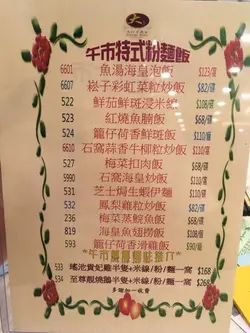 午市特式粉麵飯
6601 魚湯海皇泡飯 $123/窩
6607 崧子彩虹菜粒炒飯 $82/碟
522 鮮茄鮮斑浸米線 $108/碟
523 紅燒魚腩飯 $68/碟
524 籠仔荷香鮮斑飯 $110/籠
6610 石窩蒜香牛柳粒炒飯 $110/窩
527 梅菜扣肉飯 $68/碟
590 石窩海皇炒飯 $110/窩
531 芝士焗生蝦伊麵
532 鳳梨雞粒炒飯 $82/碟
236 梅菜蒸鯇魚飯 $68/碟
819 海皇魚翅撈飯 $108/碟
593 籠仔荷香滑雞飯 $90/籠
533 瑤池貴妃雞半隻+米線/粉/麵一窩 $168
534 至尊靚燒鵝半隻+米線/粉/麵一窩 $268
多謝加一收費